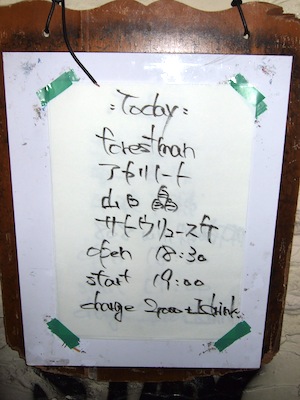 :Today:
forestman
アカリノート
晶
サトウリュースケ
open 18:30
start 19:00
charge 2000+1drink